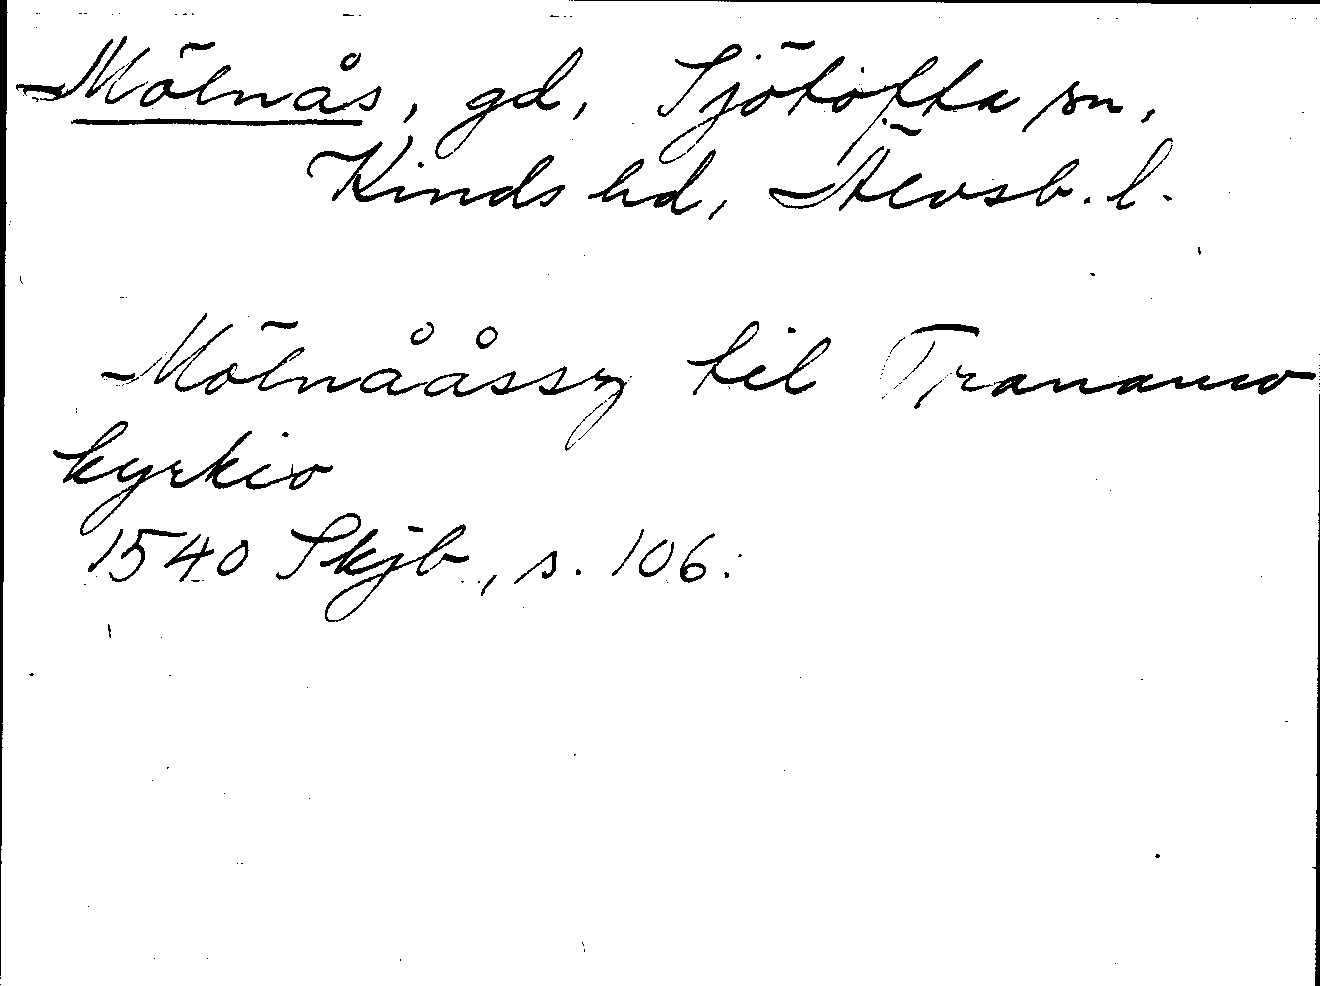 Mölnås, gd, Sjötofta sn,
Kinds hd, Älvsb. l.
Mölnååssz til Trananwo
kyrkio
1540 Skjb, s. 106.